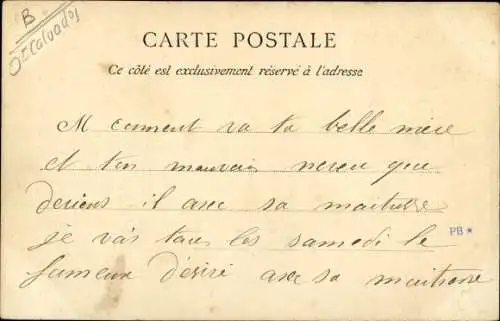 B
(Calvados)
CARTE POSTALE
Ce côté est exclusivement réservé à l'adresse
M comment va ta belle mere
et ton mauvais neveu que
deviens il avec sa maitresse
je vais tous les samedi le
PB*
fameux Désiré avec sa maitresse